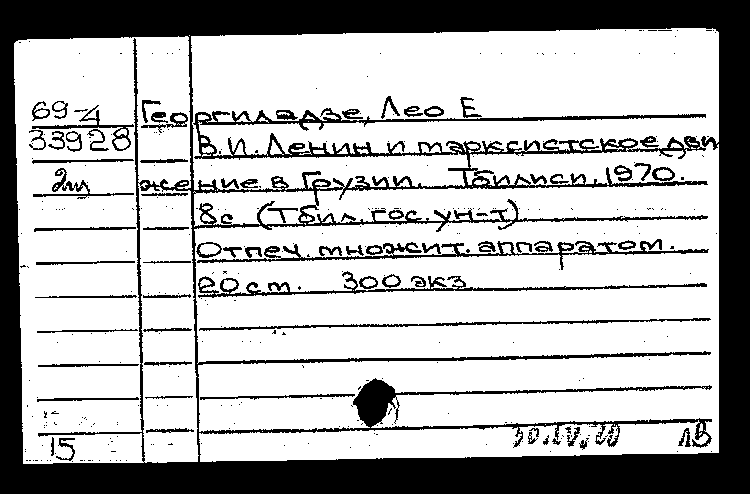 69-4 Георгиладзе, Лео Е
33928 В.И. Ленин и марксистское дви
жение в Грузии. Тбилиси, 1970.
8с (Тбил. гос. ун-т)
Отпеч. множит. аппаратом.
20 см. 300 экз
15 30.IV.70 лВ